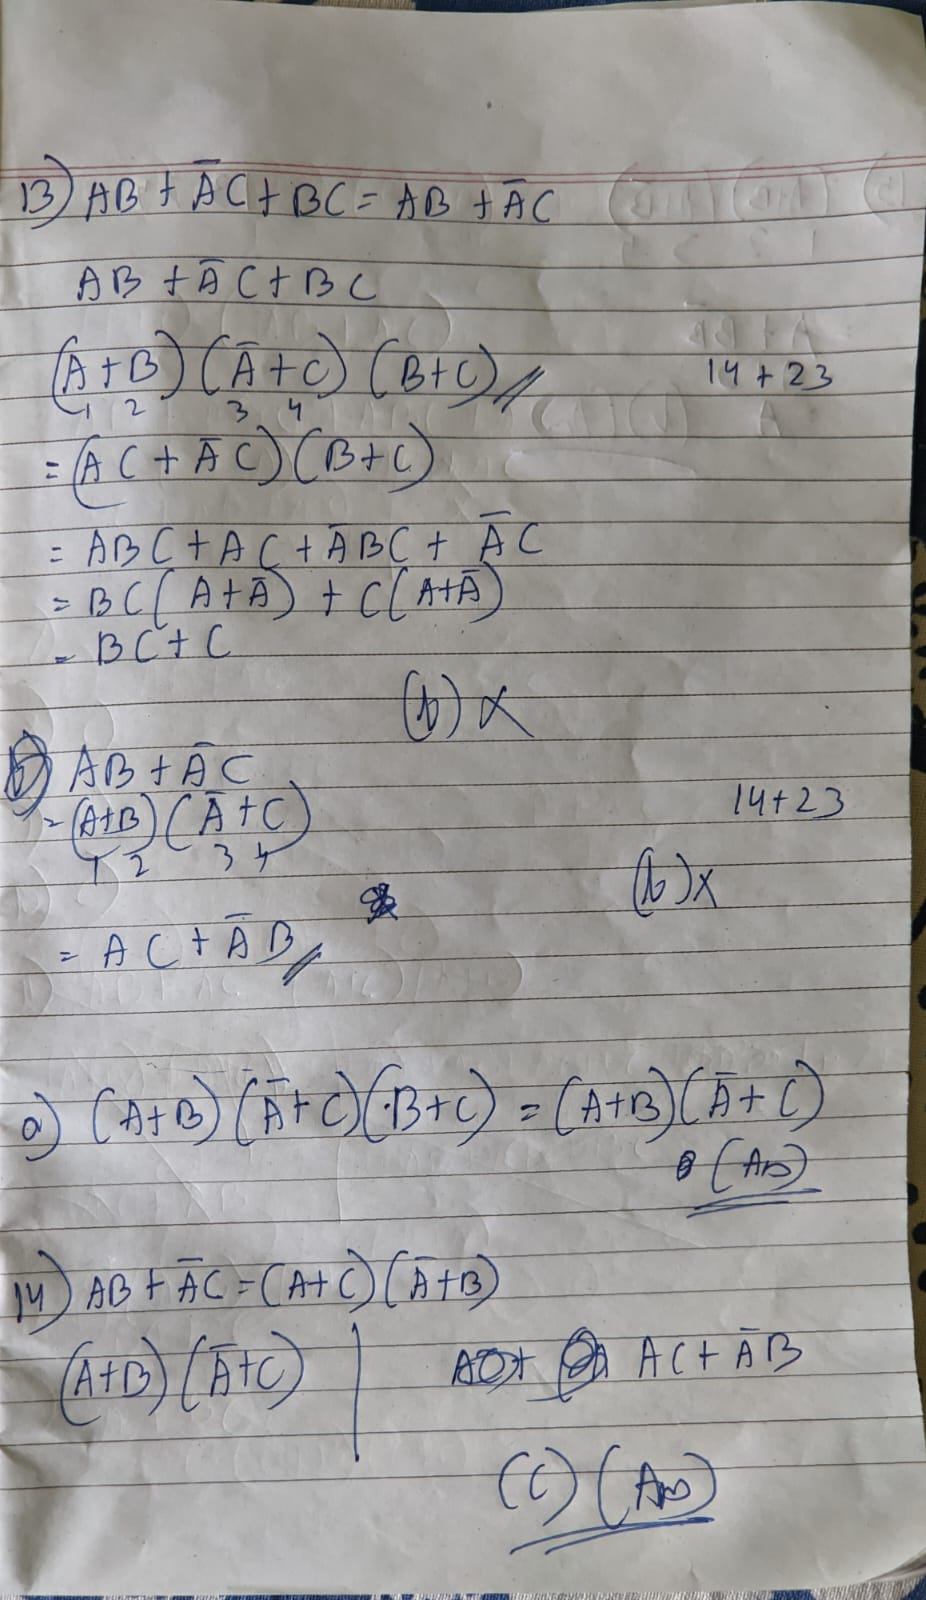 13) AB + A̅C + BC = AB + A̅C
AB + A̅C + BC
(A+B) (A̅+C) (B+C) 14+23
1 2 3 4
= (AC + A̅C) (B+C)
= ABC + AC + A̅BC + A̅C
= BC(A+A̅) + C(A+A̅)
= BC + C
(b) ×
b) AB + A̅C
= (A+B) (A̅+C) 14+23
1 2 3 4
(b) ×
= AC + A̅B
a) (A+B) (A̅+C) (B+C) = (A+B) (A̅+C)
(An)
14) AB + A̅C = (A+C) (A̅+B)
(A+B) (A̅+C) | AC + A̅B
(C) (An)